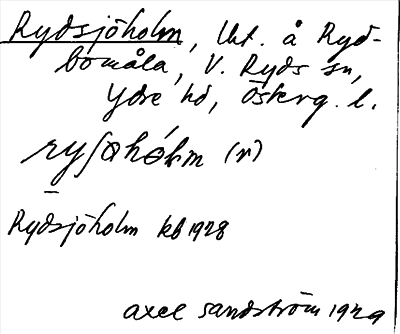 Rydsjöholm, Uht. å Ryd-
bomåla, V. Ryds sn,
Ydre hd, Österg. l.
ryʃøhólm (n)
Rydsjöholm kb 1928
axel sandström 1929